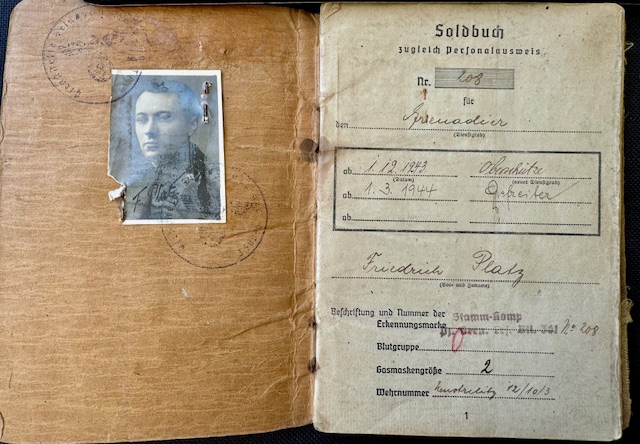 F. Platz
Soldbuch
zugleich Personalausweis
Nr. 208
für
den Grenadier
(Dienstgrad)
ab 1.12.1943 Oberschütze
(Datum) (neuer Dienstgrad)
ab 1.3.1944 Gefreiter
ab
Friedrich Platz
(Vor- und Zuname)
Beschriftung und Nummer der Stamm-Komp
Erkennungsmarke Nº 208
Blutgruppe
Gasmaskengröße 2
Wehrnummer Neustrelitz 12/10/3
1